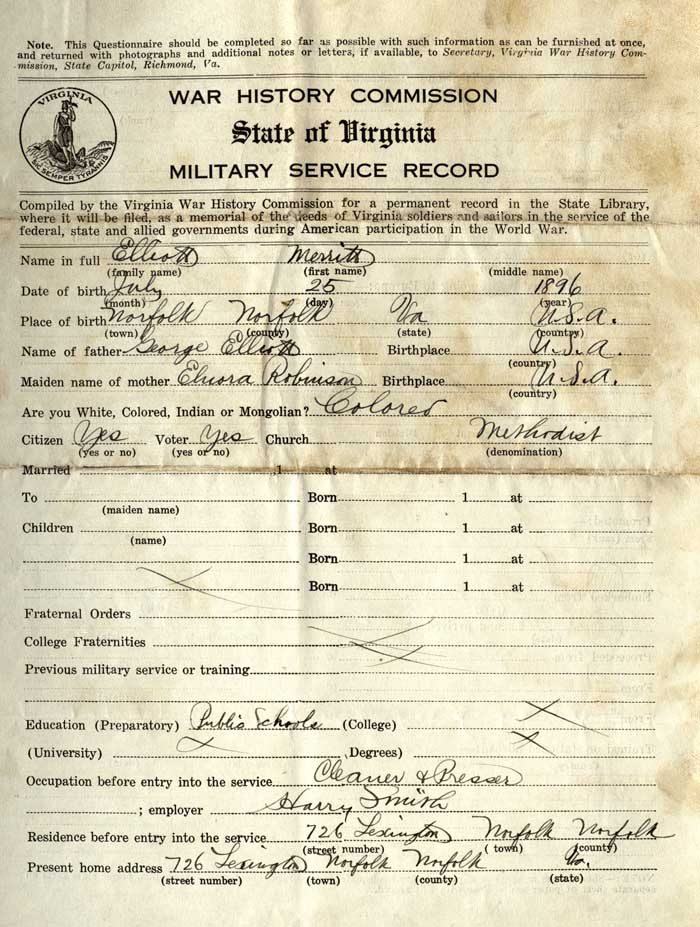 Note. This Questionnaire should be completed so far as possible with such information as can be furnished at once,
and returned with photographs and additional notes or letters, if available, to Secretary, Virginia War History Com-
mission, State Capitol, Richmond, Va.
VIRGINIA
SIC SEMPER TYRANNIS
WAR HISTORY COMMISSION
State of Virginia
MILITARY SERVICE RECORD
Compiled by the Virginia War History Commission for a permanent record in the State Library,
where it will be filed, as a memorial of the deeds of Virginia soldiers and sailors in the service of the
federal, state and allied governments during American participation in the World War.
Name in full Elliott Merritt
(family name) (first name) (middle name)
Date of birth July 25 1896
(month) (day) (year)
Place of birth Norfolk Norfolk Va U.S.A.
(town) (county) (state) (country)
Name of father George Elliott Birthplace U.S.A.
(country)
Maiden name of mother Elnora Robinson Birthplace U.S.A.
(country)
Are you White, Colored, Indian or Mongolian? Colored
Citizen Yes Voter Yes Church Methodist
(yes or no) (yes or no) (denomination)
Married 1 at
To Born 1 at
(maiden name)
Children Born 1 at
(name)
Born 1 at
Born 1 at
Fraternal Orders
College Fraternities
Previous military service or training
Education (Preparatory) Public Schools (College) X
(University) X Degrees) X
Occupation before entry into the service Cleaner & Presser
; employer Harry Smith
Residence before entry into the service 726 Lexington Norfolk Norfolk
(street number) (town) (county)
Present home address 726 Lexington Norfolk Norfolk Va.
(street number) (town) (county) (state)